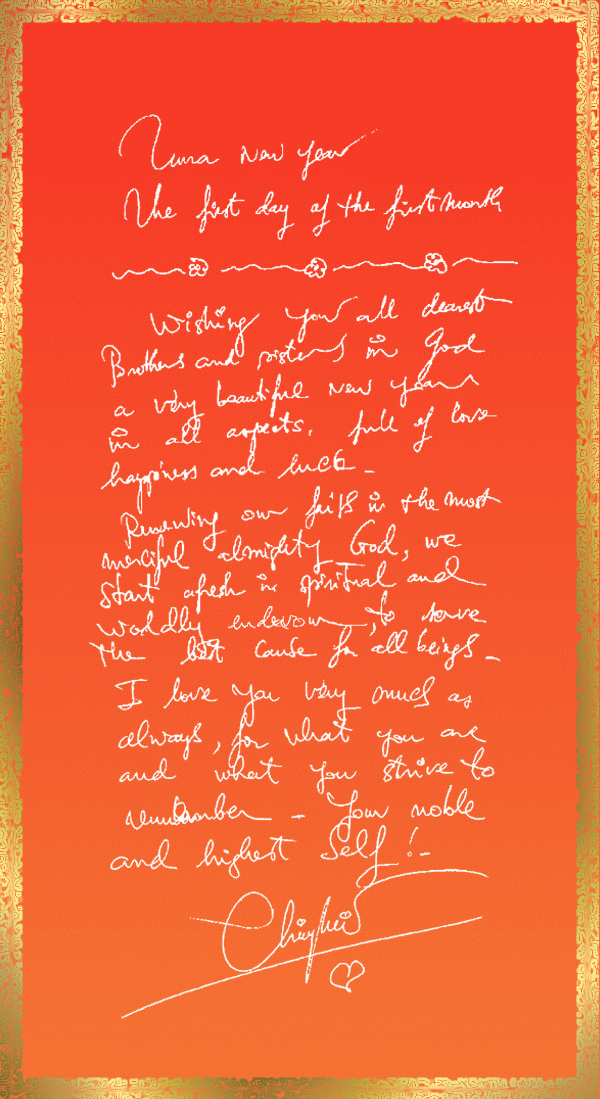 Luna New Year
The first day of the first month
Wishing you all dearest
Brothers and sisters in God
a very beautiful New Year
in all aspects, full of love
happiness and luck -
Renewing our faith in the most
merciful almighty God, we
start afresh in spiritual and
worldly endevour, to serve
the best cause for all beings -
I love you very much as
always, for what you are
and what you strive to
remember - Your noble
and highest Self! -